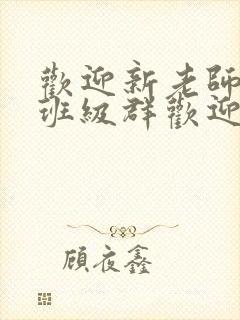 歡迎新老師
班級群歡迎
顧夜鑫